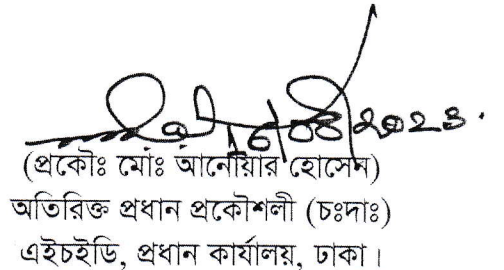 (প্রকৌঃ মোঃ আনোয়ার হোসেন)
অতিরিক্ত প্রধান প্রকৌশলী (চঃদাঃ)
এইচইডি, প্রধান কার্যালয়, ঢাকা।